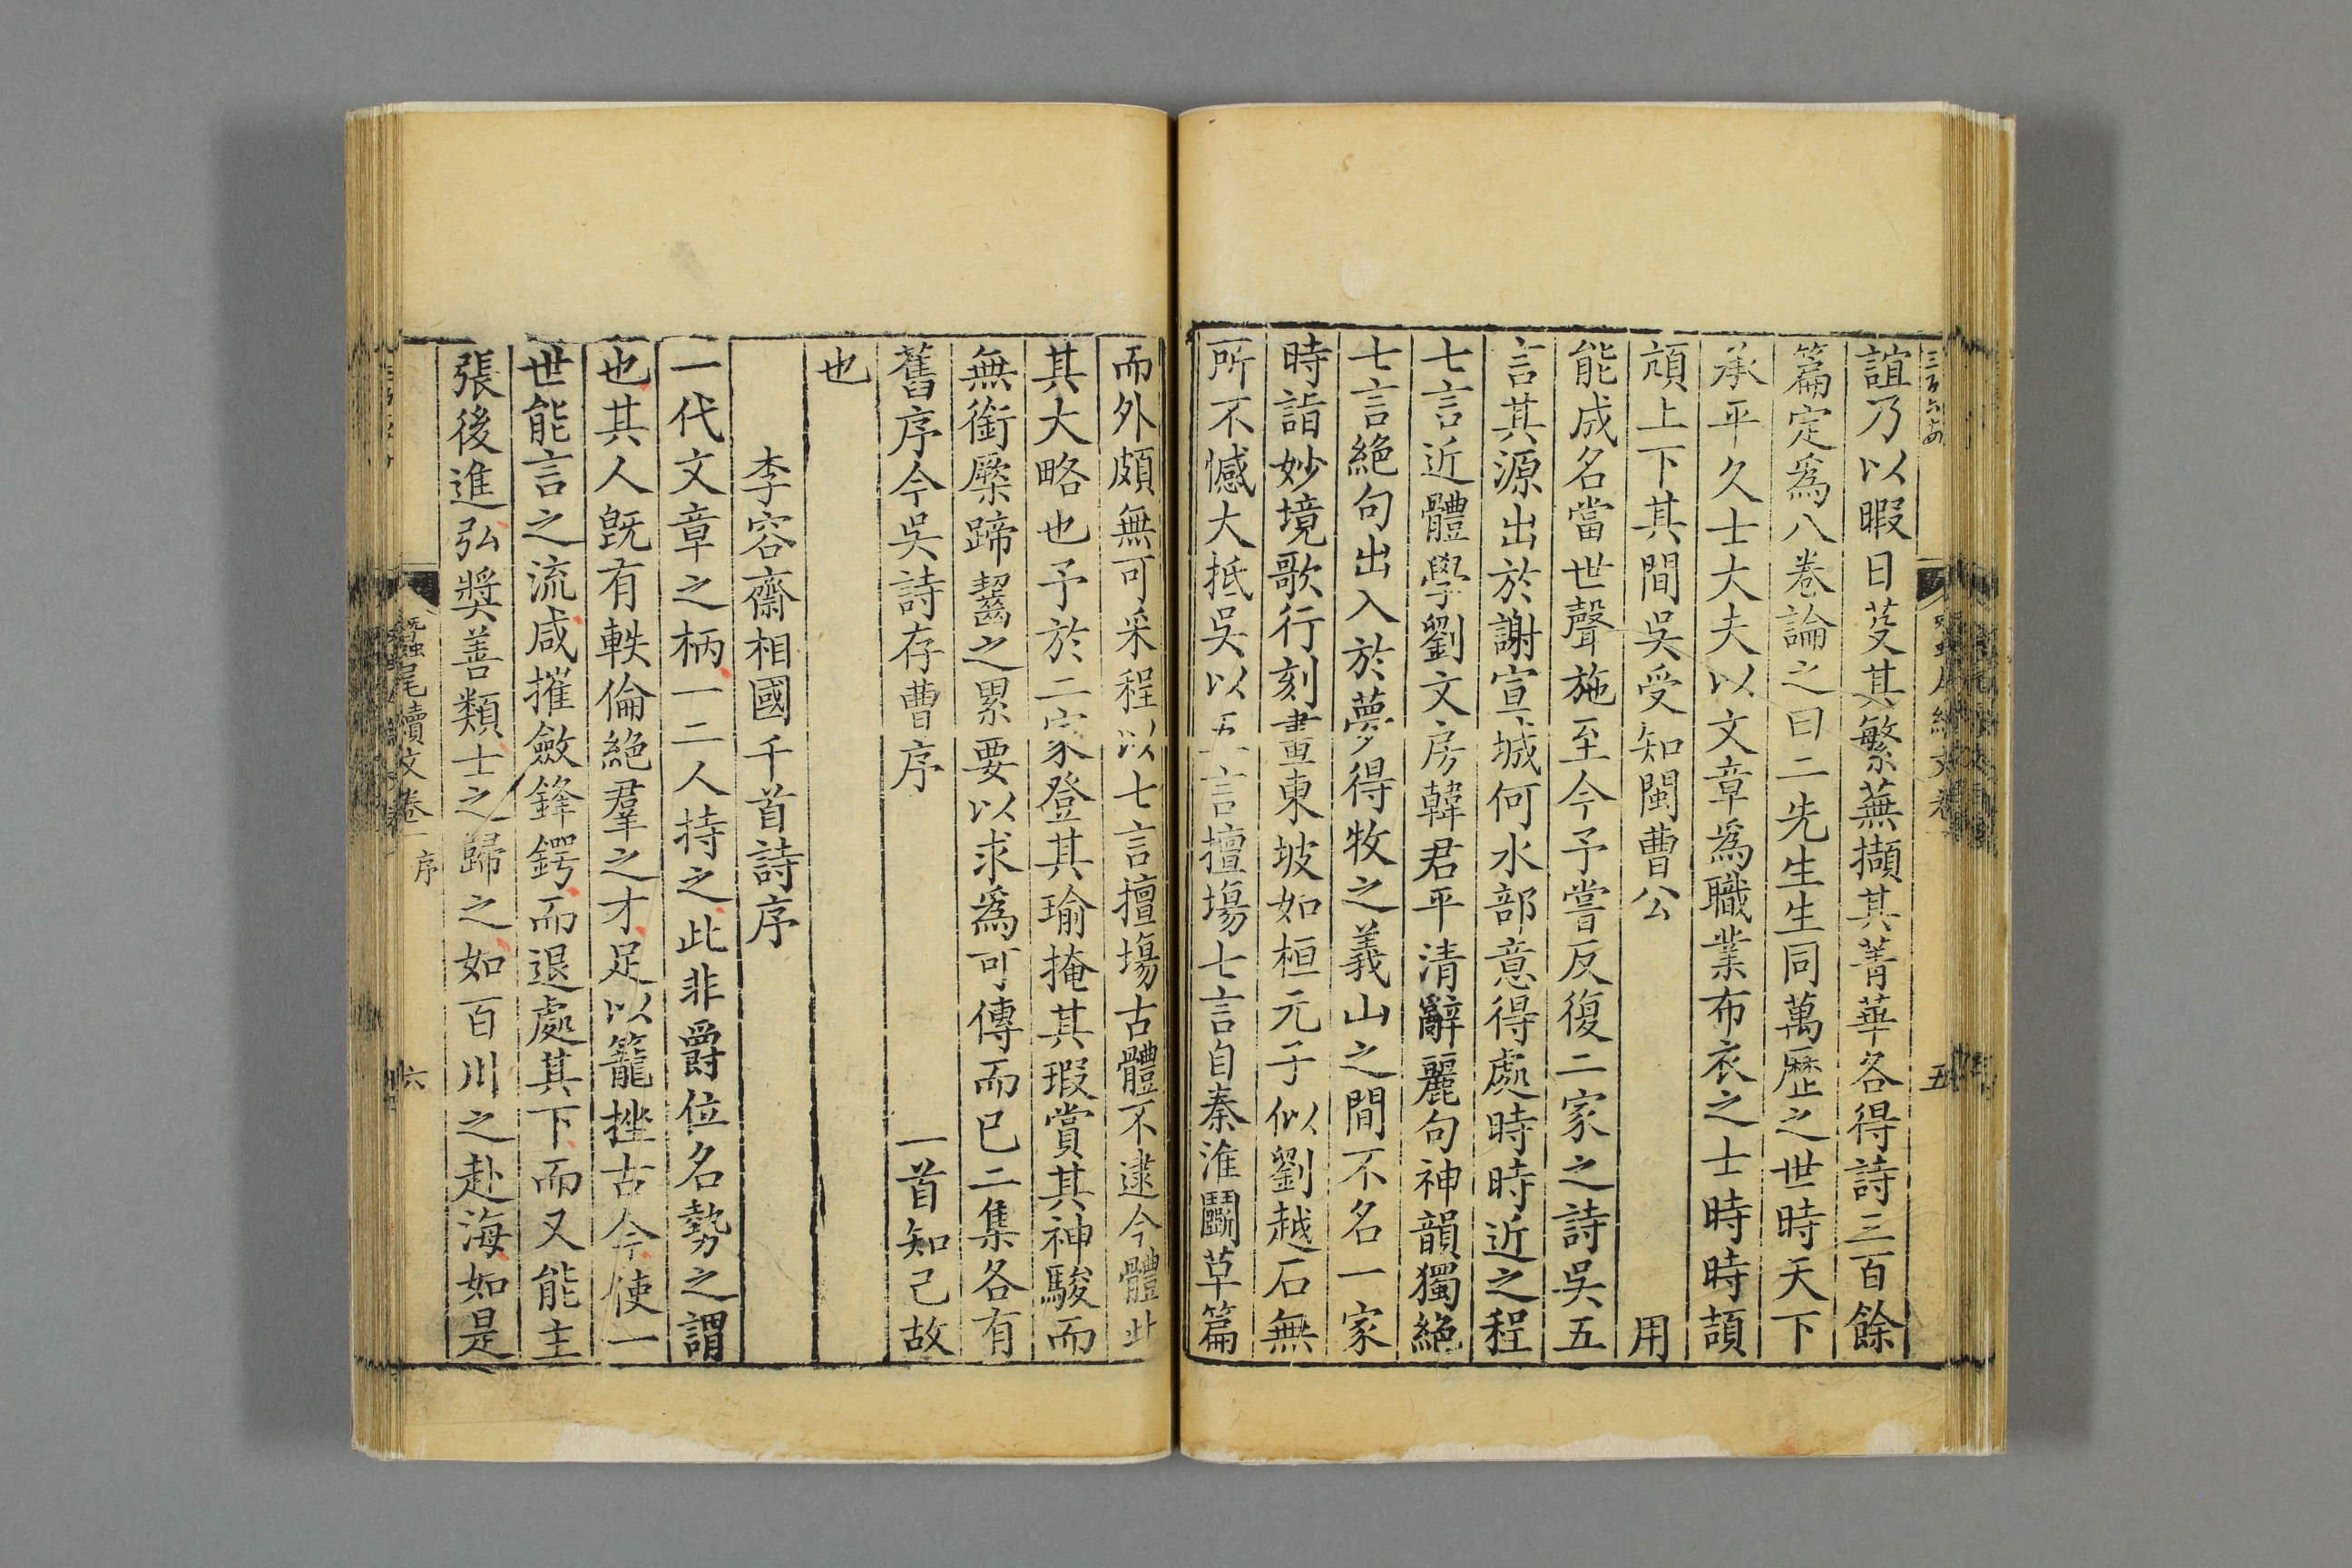 誼乃以暇日芟其繁蕪擷其菁華各得詩三百餘
篇定爲八卷論之曰二先生生同萬歷之世時天下
承平久士大夫以文章爲職業布衣之士時時頡
頏上下其間吳受知閩曹公用
能成名當世聲施至今予嘗反復二家之詩吳五
言其源出於謝宣城何水部意得處時時近之程
七言近體學劉文房韓君平清辭麗句神韻獨絕
七言絕句出入於夢得牧之義山之間不名一家
時詣妙境歌行刻畫東坡如桓元子似劉越石無
所不憾大抵吳以五言擅場七言自秦淮鬬草篇
五
而外頗無可采程以七言擅塲古體不逮今體此
其大略也予於二家登其瑜掩其瑕賞其神駿而
無銜橜蹄齧之累要以求爲可傳而已二集各有
舊序今吳詩存曹序一首知己故
也
李容齋相國千首詩序
一代文章之柄一二人持之此非爵位名勢之謂
也其人旣有軼倫絕羣之才足以籠挫古今使一
世能言之流咸摧斂鋒鍔而退處其下而又能主
張後進弘奬善類士之歸之如百川之赴海如是
蠶尾續文卷一 序
六